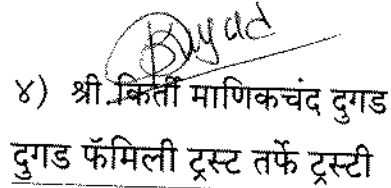 ४) श्री किर्ती माणिकचंद दुगड
दुगड फॅमिली ट्रस्ट तर्फे ट्रस्टी